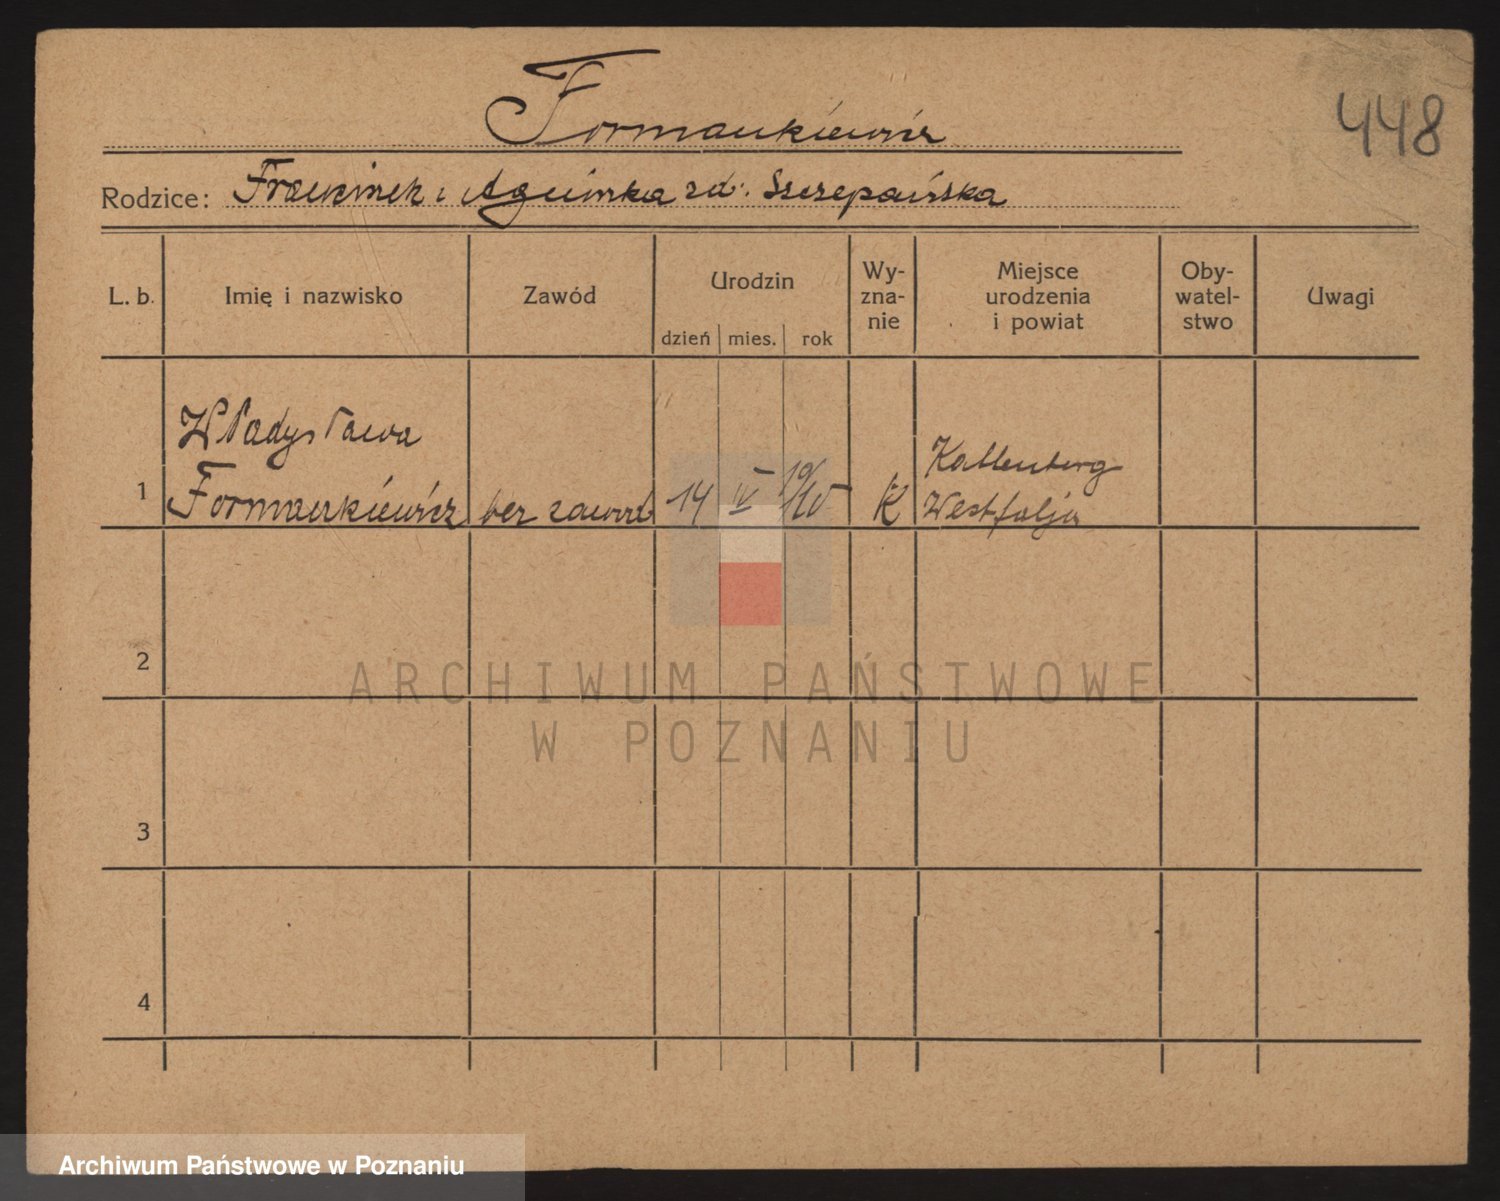 Formankiewicz
448
Rodzice: Franciszek i Agnieszka zd. Szczepańska
L. b. Imię i nazwisko Zawód Urodzin Wy-zna-nie Miejsce urodzenia i powiat Oby-watel-stwo Uwagi
dzień mies. rok
Władysława
1 Formankiewicz bez zawod 14 IV K Kallenberg
Westfalja
2
3
4
ARCHIWUM PAŃSTWOWE
W POZNANIU
Archiwum Państwowe w Poznaniu